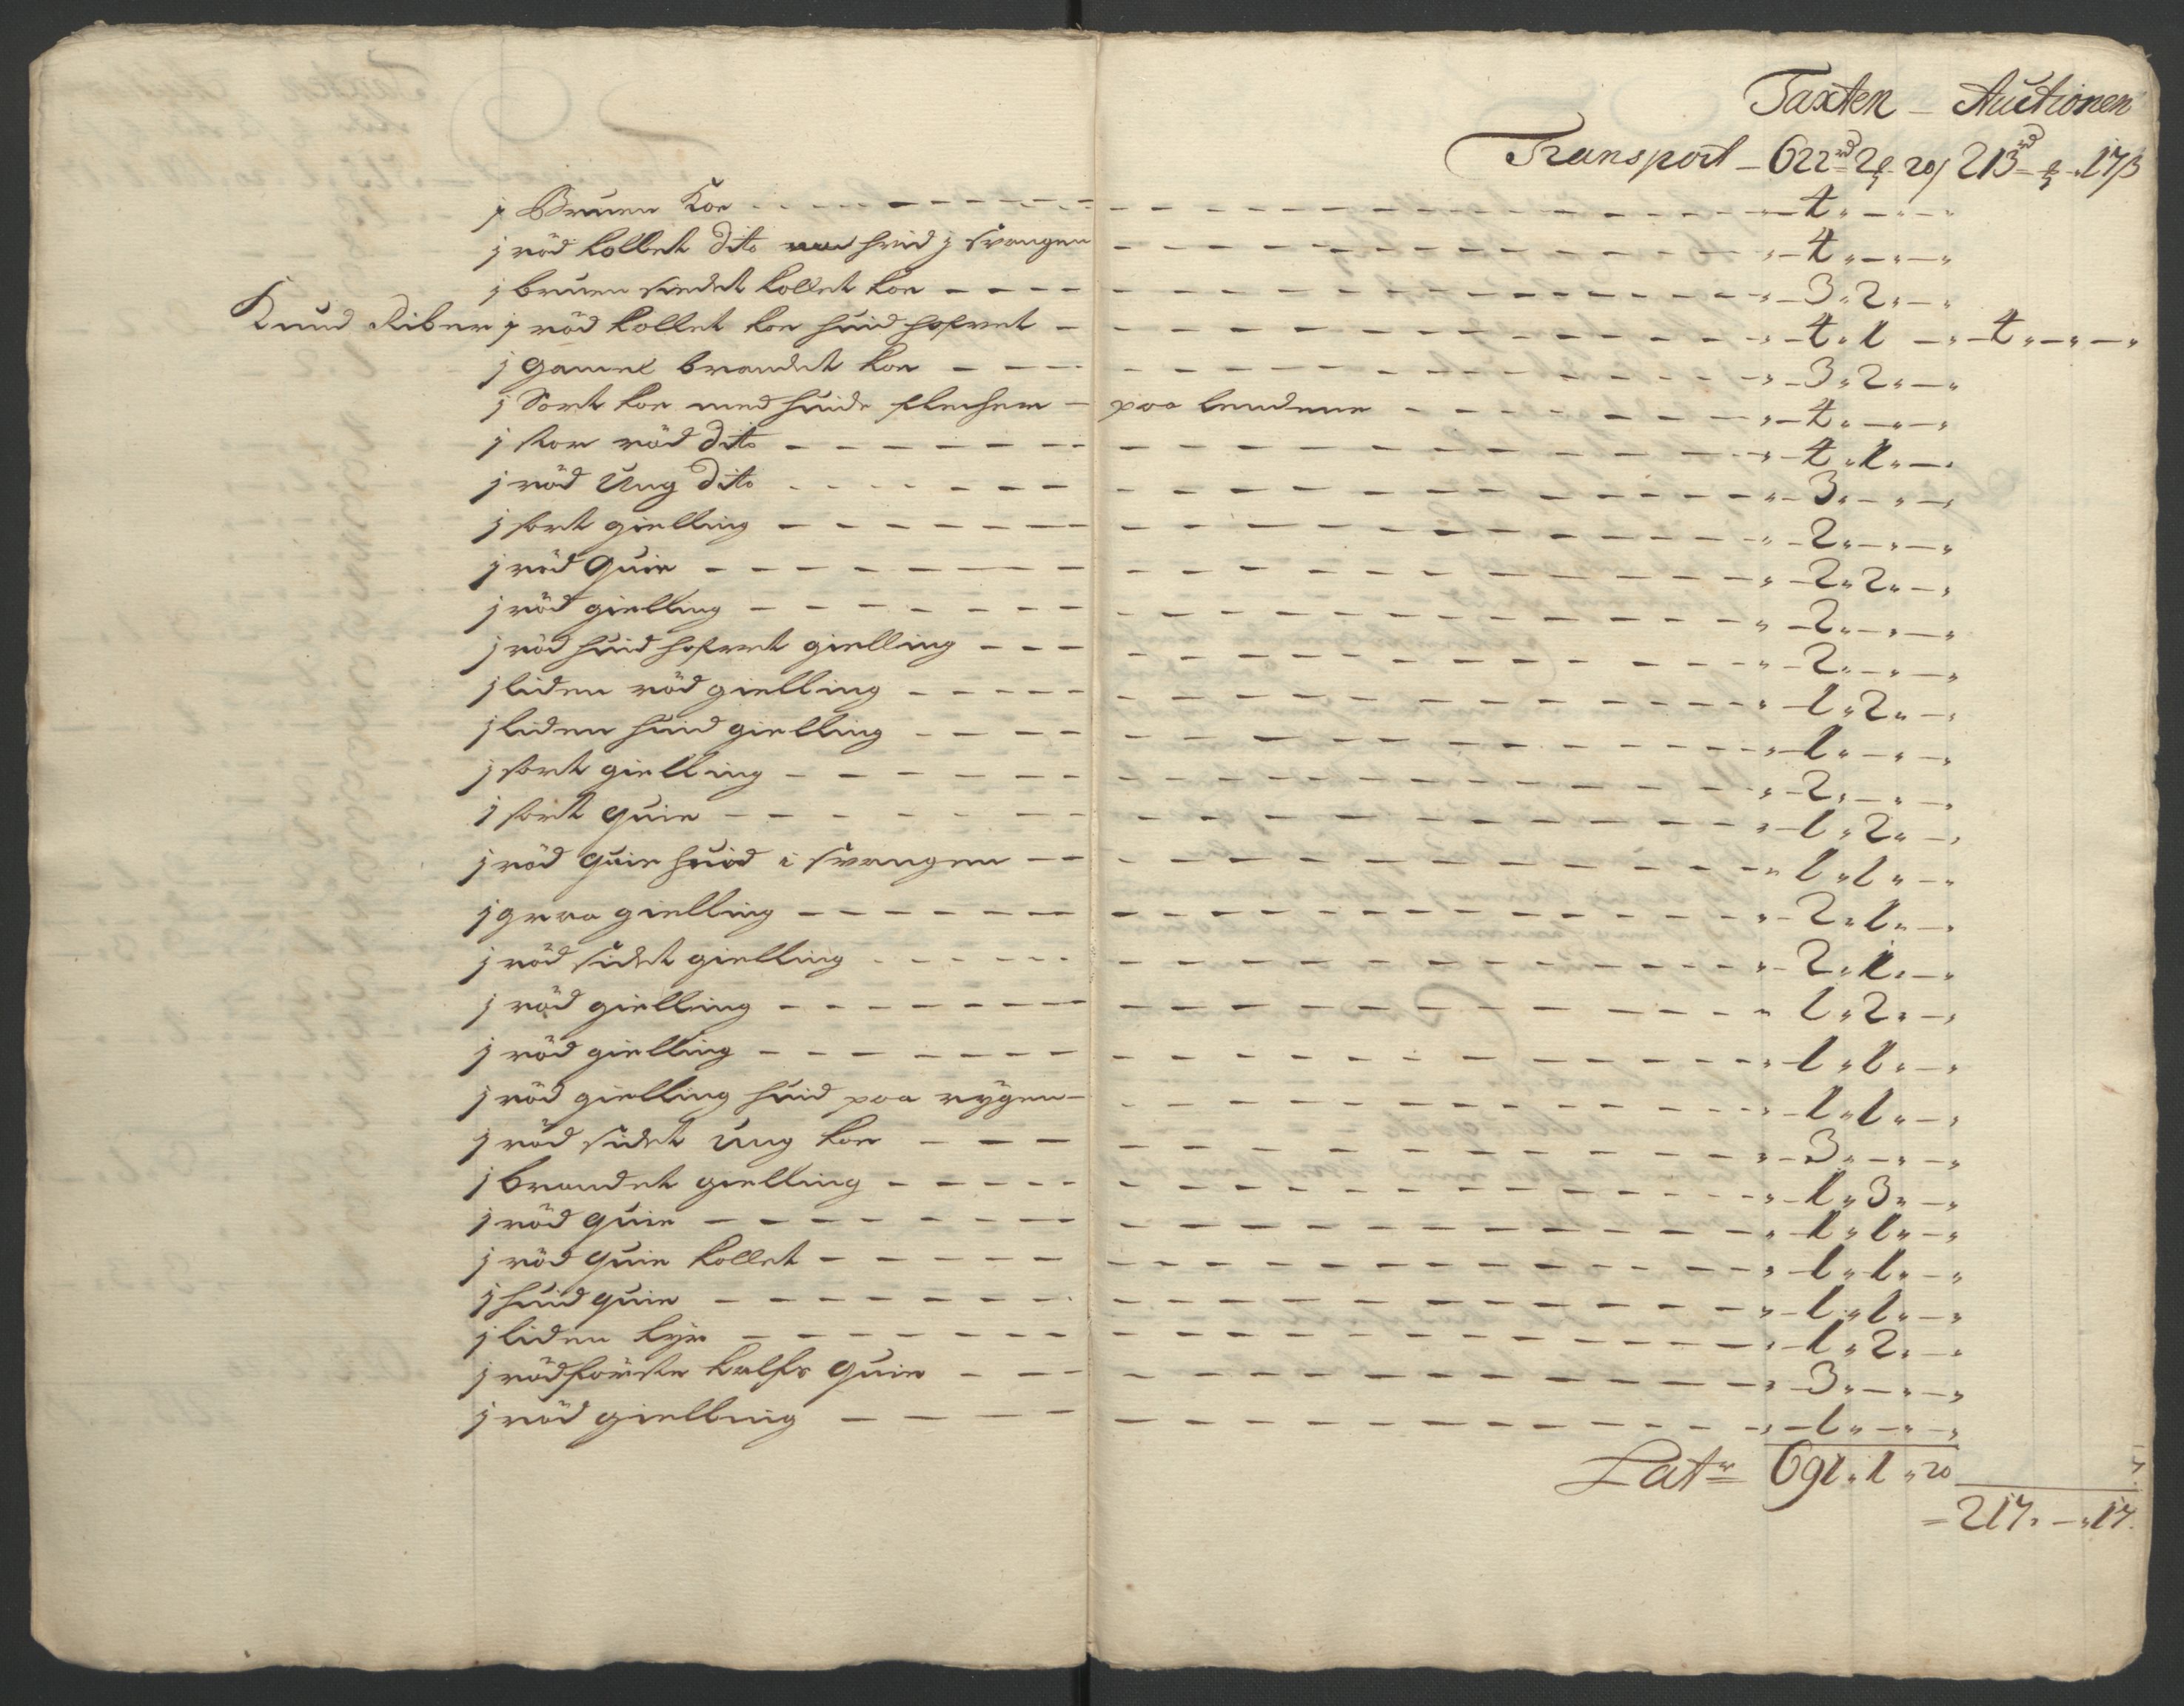 Taxten – Auctionen
Transport – 622 rd 2 – 20 / 213 rd – 17 ß
j Bruun Koe – „ – 4 „ – „ –
j röd kollet dito med hvid j svangen – „ – 4 „ – „ – „
j bruun siedet kollet koe – „ – 3 „ 2 „ – „
Knud Riber j röd kollet koe huid hofvet – „ – 4 „ 1 – „ – 4 „ – „ – „
j gamel brandet koe – „ – 3 „ 2 „ – „
j Sort koe med huide flecher – paa lendene – „ – 4 „ – „ – „
j stor röd dito – „ – 4 „ 1 „ – „
j röd ung dito – „ – 3 „ – „ – „
j sort gielling – „ – 2 „ – „ – „
j röd quie – „ – 2 „ 2 „ – „
j röd gielling – „ – 2 „ – „ – „
j röd huid hofvet gielling – „ – 2 „ – „ – „
j liden röd gielling – „ – 1 „ 2 „ – „
j liden huid gielling – „ – 1 „ – „ – „
j sort gielling – „ – 2 „ – „ – „
j sort quie – „ – 1 „ 2 „ – „
j röd quie huid i svangen – „ 1 „ 1 „ – „
j graa gielling – „ – 2 „ 1 „ – „
j röd sidet gielling – „ – 2 „ 1 „ – „
j röd gielling – „ 1 „ 2 „ – „
j röd gielling – „ – 1 „ 1 „ – „
j röd gielling huid paa rygen – „ – 1 „ 1 „ – „
j röd sidet ung koe – „ – 3 „ – „ – „
j brandet gielling – „ – 1 „ 3 „ – „
j röd quie – „ – 1 „ 1 „ – „
j röd quie kollet – „ – 1 „ 1 „ – „
j huid quie – „ – 1 „ 1 „ – „
j liden tyr – „ – 1 „ 2 „ – „
j röd förste kalfs quie – „ 3 „ – „ – „
j röd gielling – „ – 1 „ – „ – „
Lat: 691 „ 1 „ 20
– 217 „ – „ 17